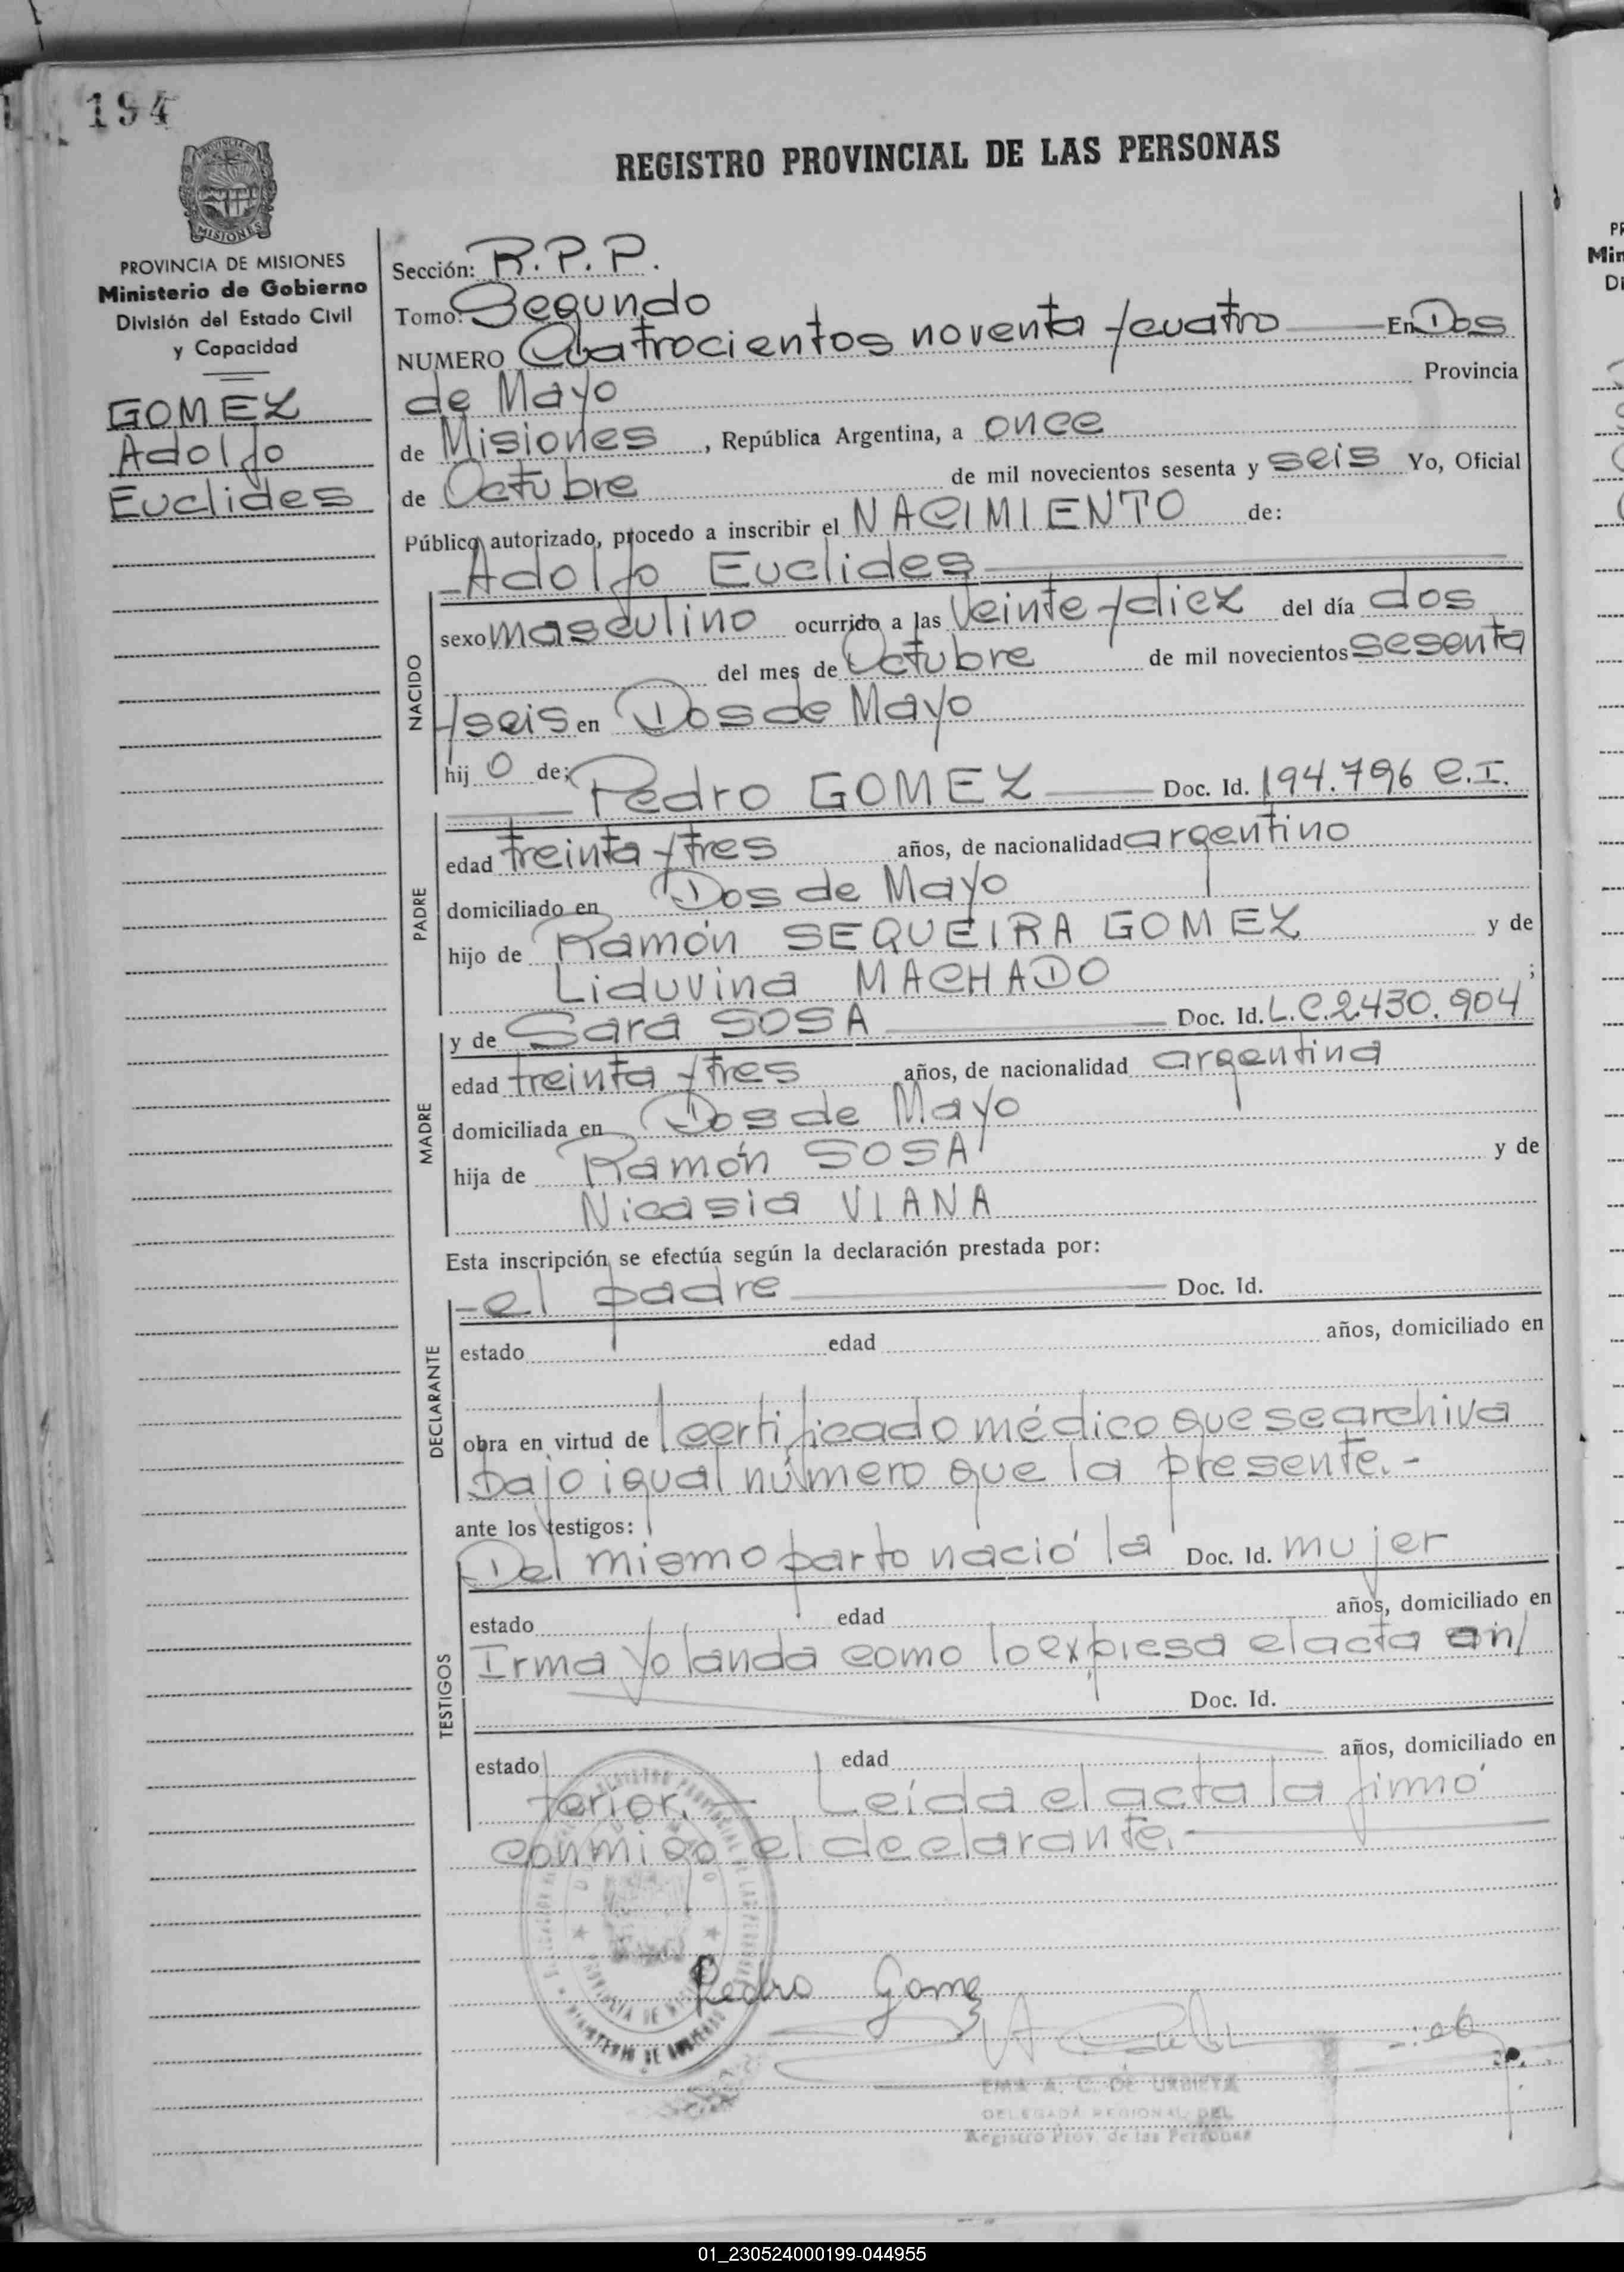 194
REGISTRO PROVINCIAL DE LAS PERSONAS
MISIONES
PROVINCIA DE MISIONES
Ministerio de Gobierno
División del Estado Civil
y Capacidad
GOMEZ
Adolfo
Euclides
Sección: R.P.P.
Tomo: Segundo
NUMERO Cuatrocientos noventa y cuatro En Dos
de Mayo Provincia
de Misiones, República Argentina, a once
de Octubre de mil novecientos sesenta y seis Yo, Oficial
Público autorizado, procedo a inscribir el NACIMIENTO de:
Adolfo Euclides
NACIDO
sexo masculino ocurrido a las Veinte y diez del día dos
del mes de Octubre de mil novecientos sesenta
y seis en Dos de Mayo
hij o de:
Pedro GOMEZ Doc. Id. 194.796 C.I.
PADRE
edad treinta y tres años, de nacionalidad argentino
domiciliado en Dos de Mayo
hijo de Ramón SEQUEIRA GOMEZ y de
Liduvina MACHADO ;
y de Sara SOSA Doc. Id. L.C.2.430.904
MADRE
edad treinta y tres años, de nacionalidad argentina
domiciliada en Dos de Mayo
hija de Ramón SOSA y de
Nicasia VIANA
Esta inscripción se efectúa según la declaración prestada por:
el padre Doc. Id.
DECLARANTE
estado edad años, domiciliado en
obra en virtud de l certificado médico que se archiva
bajo igual número que la presente.-
ante los testigos:
Del mismo parto nació la Doc. Id. mujer
TESTIGOS
estado edad años, domiciliado en
Irma Yolanda como lo expresa el acta an/
Doc. Id.
estado edad años, domiciliado en
terior.- Leída el acta la firmó
conmigo el declarante.-
Pedro Gomez
EMA A. C. DE URBIETA
DELEGADA REGIONAL DEL
Registro Prov. de las Personas
01_230524000199-044955